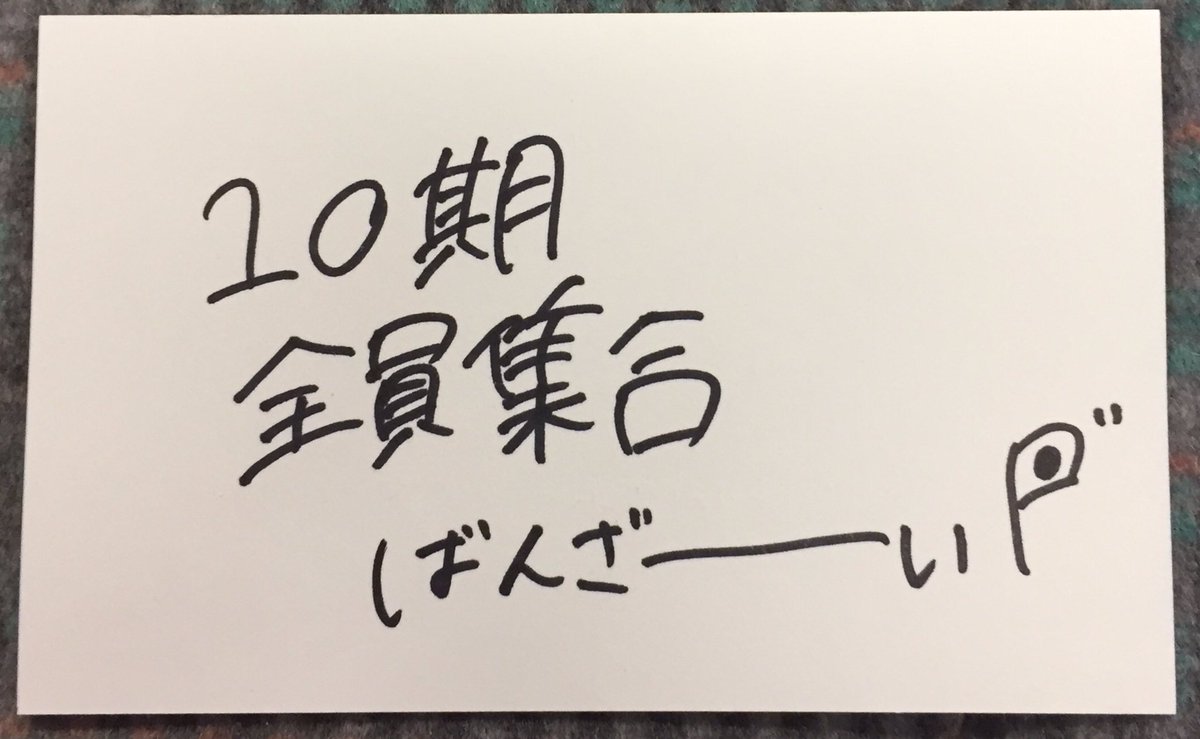 10期
全員集合
ばんざーい